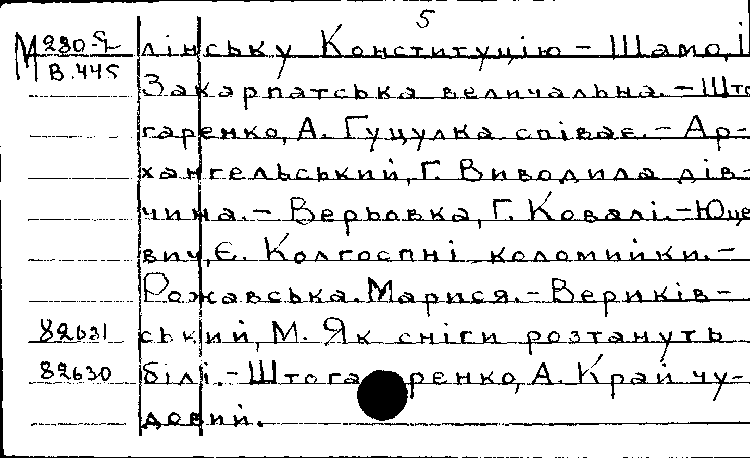 5
М 280-5/2 лінську Конституцію - Шамо, І
В.445
Закарпатська величальна. - Што
гаренко, А. Гуцулка співає. - Ар-
хангельський, Г. Виводила дів-
чина. - Верьовка, Г. Ковалі. - Юце
вич, Є. Колгоспні коломийки. -
Рожавська. Марися. - Вериків-
82631 ський, М. Як сніги розтануть
82630 білі. - Штогаренко, А. Край чу-
довий.